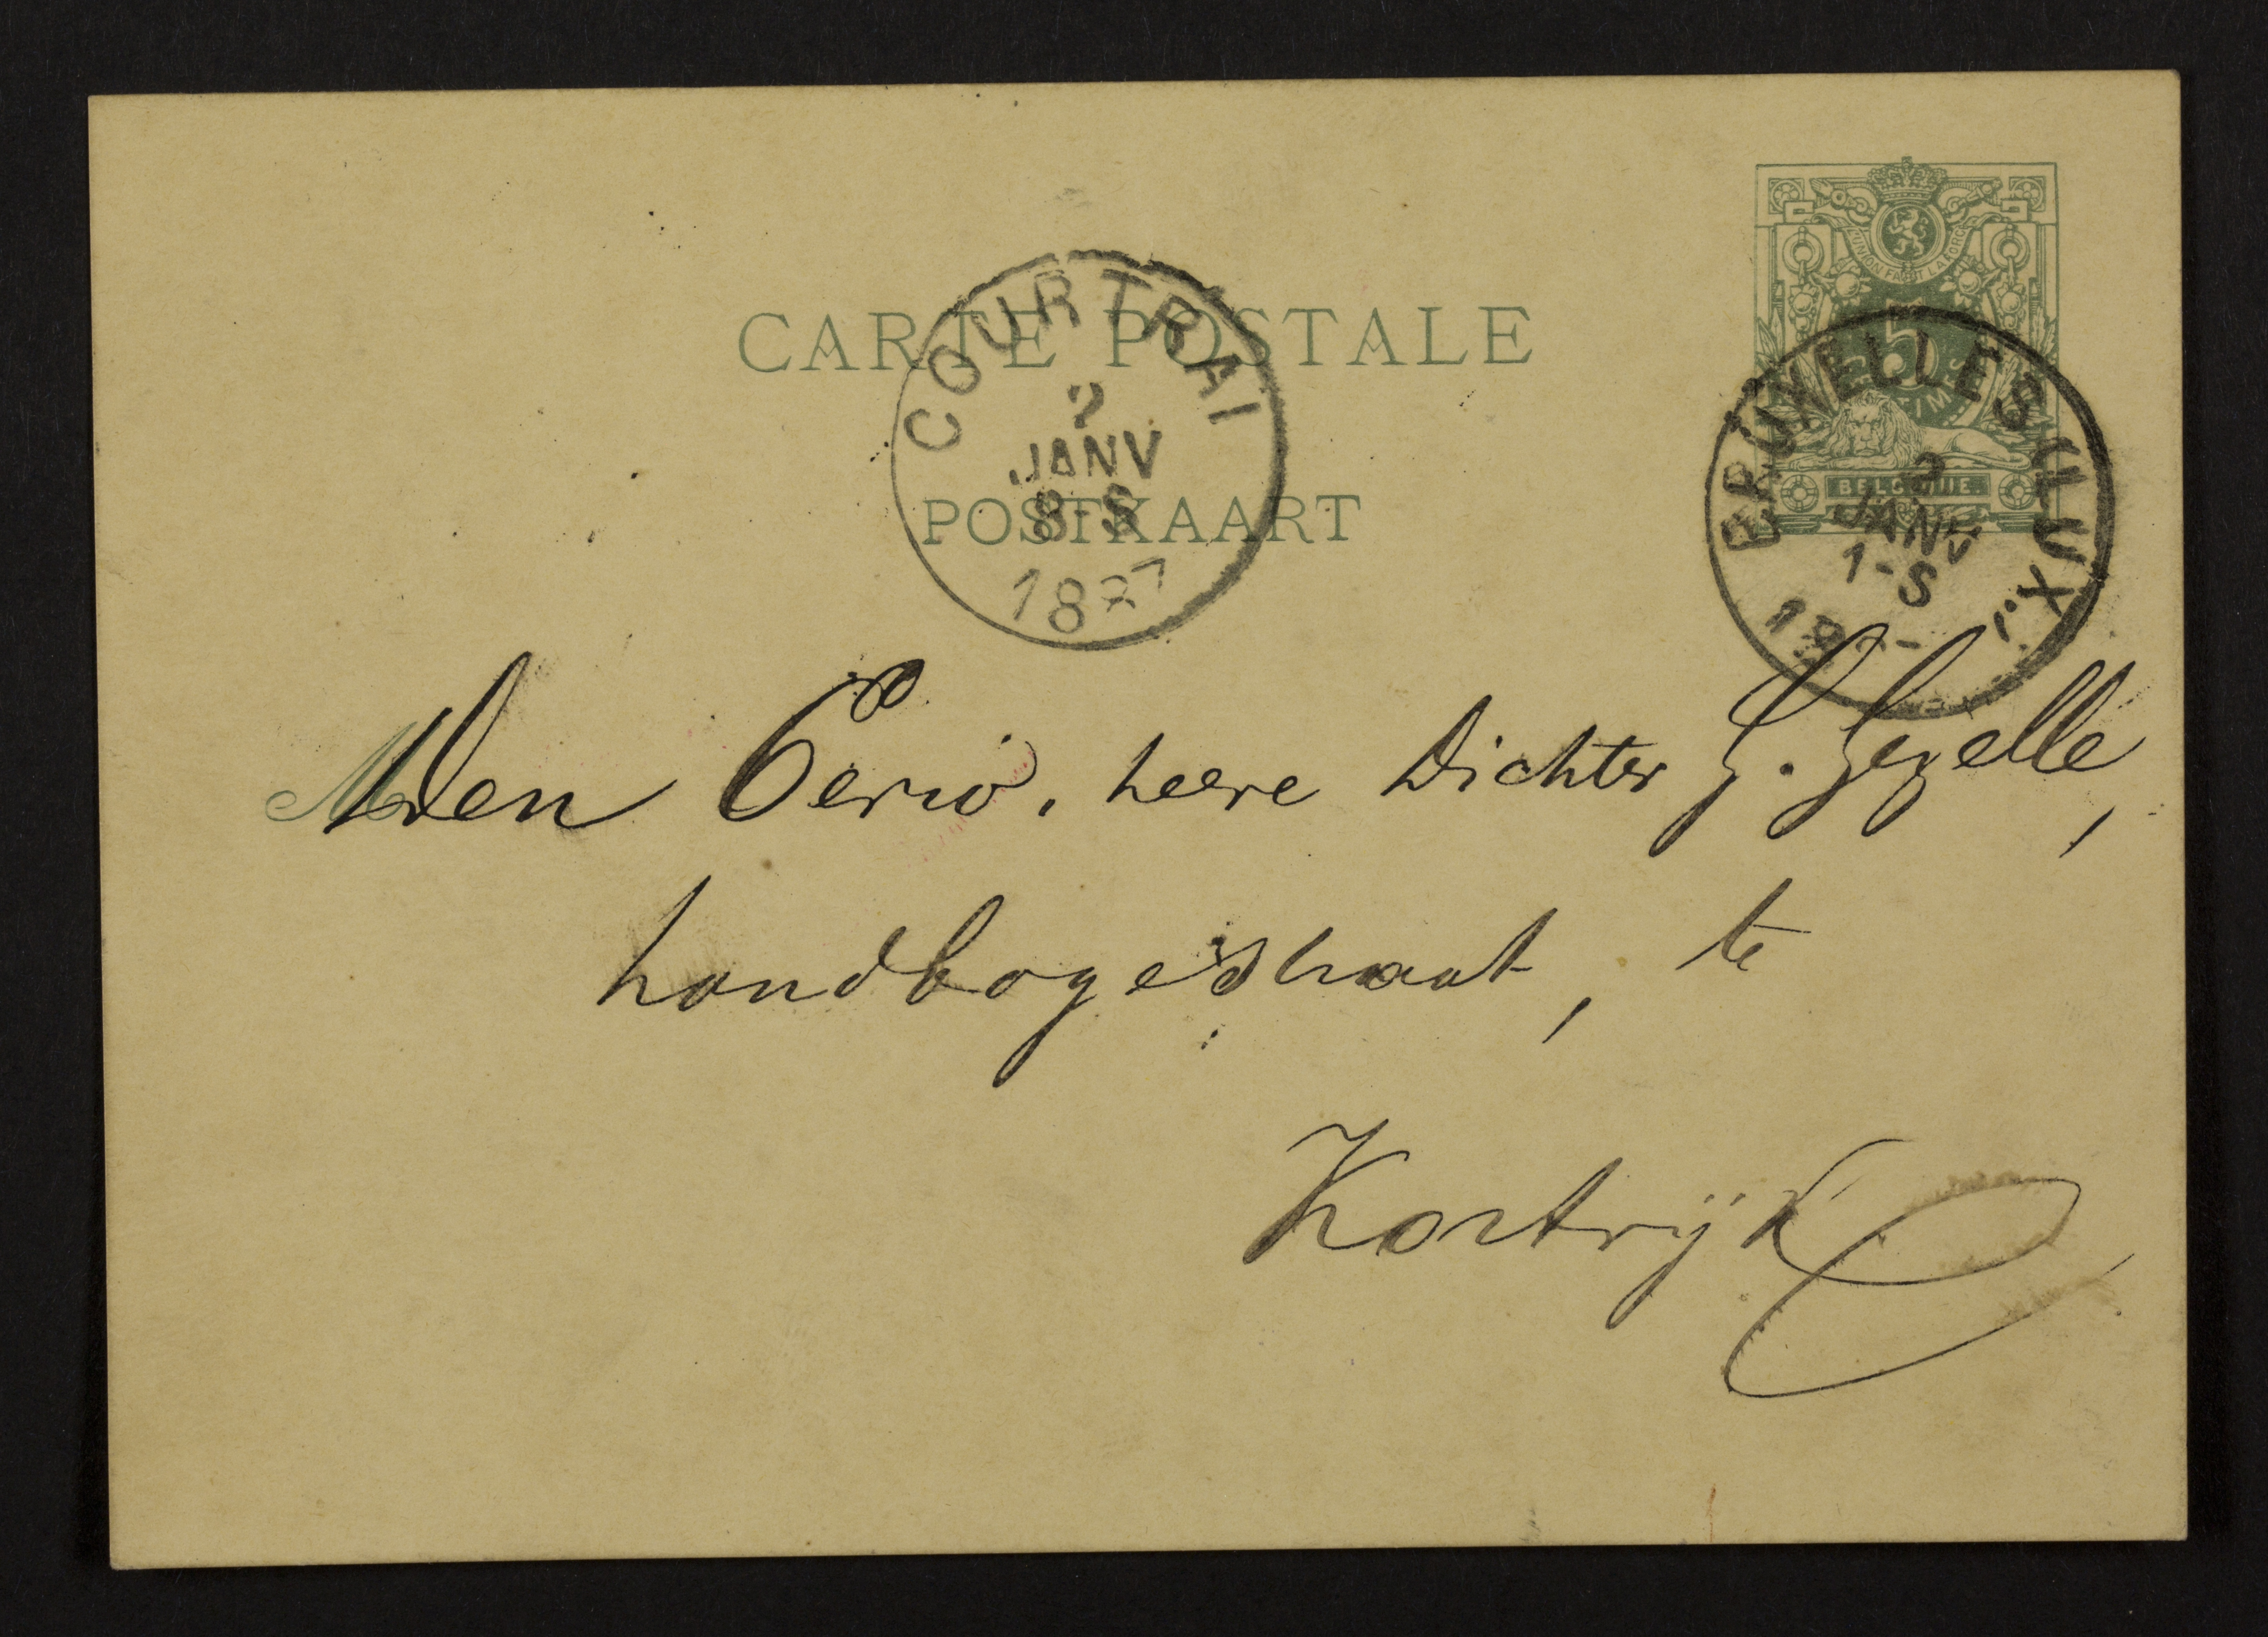 L'UNION FAIT LA FORCE
5
BELGIQUE
CARTE POSTALE
POSTKAART
COURTRAI
2
JANV
8-S
BRUXELLES (LUX.)
2
JANV
1-S
M
Den Eerw. heere Dichter G. Gezelle,
handbogestraat, te
Kortrijk